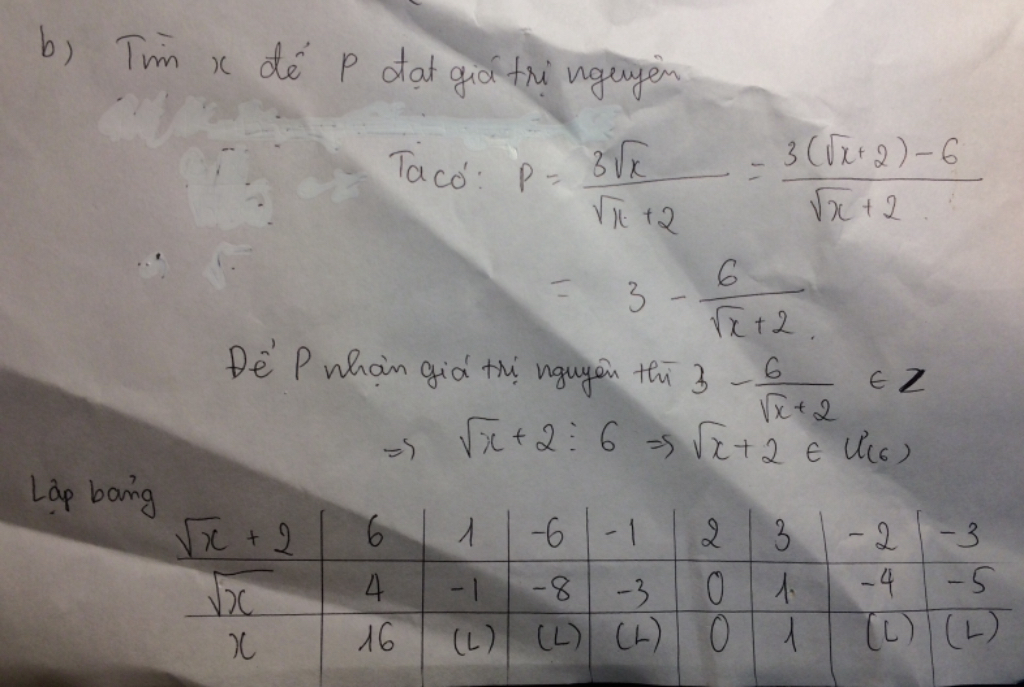 b) Tìm x để P đạt giá trị nguyên
Ta có: P = 3√x / √x + 2 = 3(√x + 2) - 6 / √x + 2
= 3 - 6 / √x + 2.
Để P nhận giá trị nguyên thì 3 - 6 / √x + 2 ∈ Z
=> √x + 2 ⋮ 6 => √x + 2 ∈ Ư(6)
Lập bảng
√x + 2 | 6 | 1 | -6 | -1 | 2 | 3 | -2 | -3
√x | 4 | -1 | -8 | -3 | 0 | 1 | -4 | -5
x | 16 | (L) | (L) | (L) | 0 | 1 | (L) | (L)